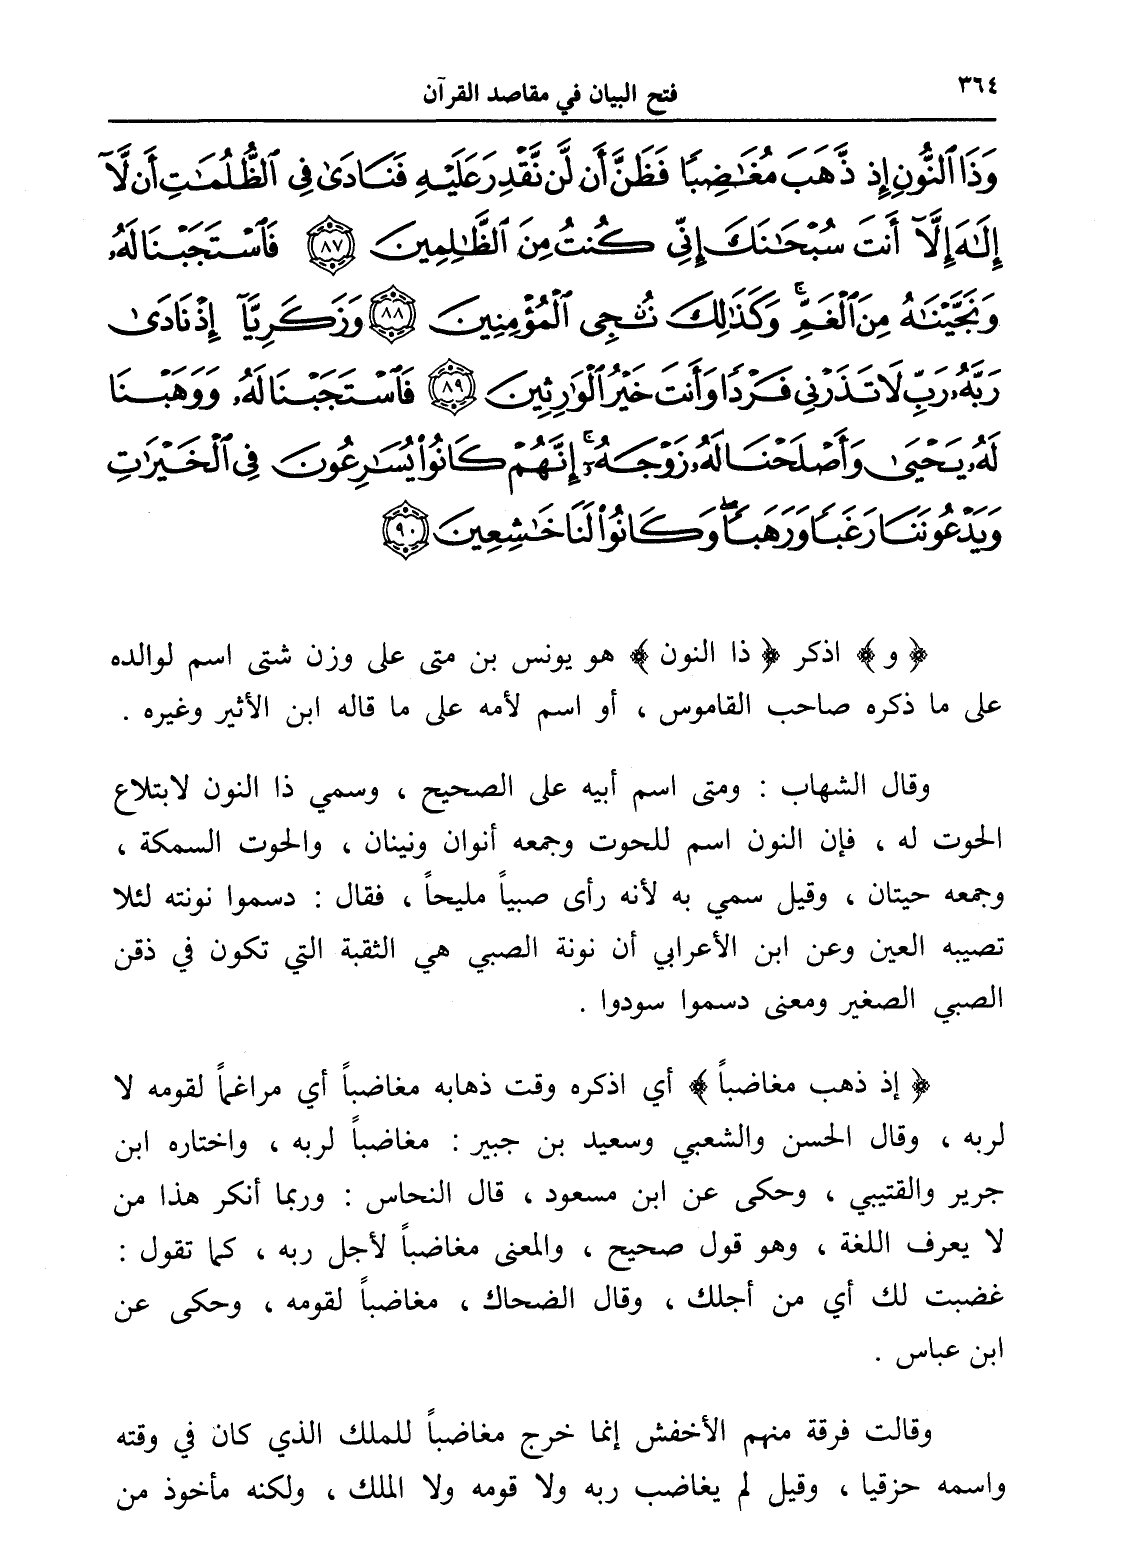 ٣٦٤
فتح البيان في مقاصد القرآن
وَذَا ٱلنُّونِ إِذ ذَّهَبَ مُغَٰضِبًا فَظَنَّ أَن لَّن نَّقْدِرَ عَلَيْهِ فَنَادَىٰ فِى ٱلظُّلُمَٰتِ أَن لَّآ
إِلَٰهَ إِلَّآ أَنتَ سُبْحَٰنَكَ إِنِّى كُنتُ مِنَ ٱلظَّٰلِمِينَ ٨٧ فَٱسْتَجَبْنَا لَهُۥ
وَنَجَّيْنَٰهُ مِنَ ٱلْغَمِّ ۚ وَكَذَٰلِكَ نُۨجِى ٱلْمُؤْمِنِينَ ٨٨ وَزَكَرِيَّآ إِذْ نَادَىٰ
رَبَّهُۥ رَبِّ لَا تَذَرْنِى فَرْدًا وَأَنتَ خَيْرُ ٱلْوَٰرِثِينَ ٨٩ فَٱسْتَجَبْنَا لَهُۥ وَوَهَبْنَا
لَهُۥ يَحْيَىٰ وَأَصْلَحْنَا لَهُۥ زَوْجَهُۥٓ ۚ إِنَّهُمْ كَانُوا۟ يُسَٰرِعُونَ فِى ٱلْخَيْرَٰتِ
وَيَدْعُونَنَا رَغَبًا وَرَهَبًا ۖ وَكَانُوا۟ لَنَا خَٰشِعِينَ ٩٠
﴿ و ﴾ اذكر ﴿ ذا النون ﴾ هو يونس بن متى على وزن شتى اسم لوالده
على ما ذكره صاحب القاموس ، أو اسم لأمه على ما قاله ابن الأثير وغيره .
وقال الشهاب : ومتى اسم أبيه على الصحيح ، وسمي ذا النون لابتلاع
الحوت له ، فإن النون اسم للحوت وجمعه أنوان ونينان ، والحوت السمكة ،
وجمعه حيتان ، وقيل سمي به لأنه رأى صبياً مليحاً ، فقال : دسموا نونته لئلا
تصيبه العين وعن ابن الأعرابي أن نونة الصبي هي الثقبة التي تكون في ذقن
الصبي الصغير ومعنى دسموا سودوا .
﴿ إذ ذهب مغاضباً ﴾ أي اذكره وقت ذهابه مغاضباً أي مراغماً لقومه لا
لربه ، وقال الحسن والشعبي وسعيد بن جبير : مغاضباً لربه ، واختاره ابن
جرير والقتيبي ، وحكى عن ابن مسعود ، قال النحاس : وربما أنكر هذا من
لا يعرف اللغة ، وهو قول صحيح ، والمعنى مغاضباً لأجل ربه ، كما تقول :
غضبت لك أي من أجلك ، وقال الضحاك ، مغاضباً لقومه ، وحكى عن
ابن عباس .
وقالت فرقة منهم الأخفش إنما خرج مغاضباً للملك الذي كان في وقته
واسمه حزقيا ، وقيل لم يغاضب ربه ولا قومه ولا الملك ، ولكنه مأخوذ من